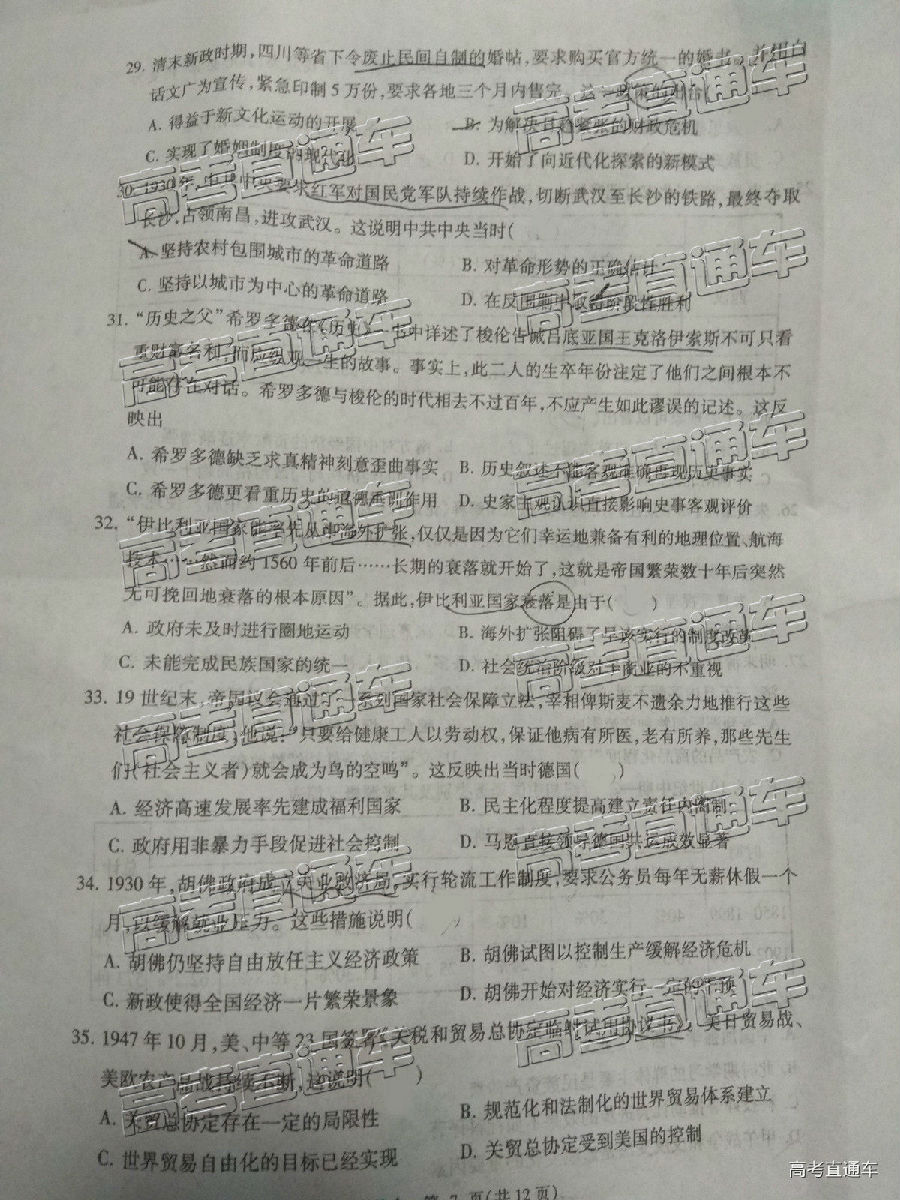 29. 清末新政时期，四川等省下令废止民间自制的婚帖，要求购买官方统一的婚书，并用白
话文广为宣传，紧急印制5万份，要求各地三个月内售完。这一政策的
A. 得益于新文化运动的开展
B. 为解决日趋紧张的财政危机
C. 实现了婚姻制度的现代化
D. 开始了向近代化探索的新模式
30. 1930年，中共中央要求红军对国民党军队持续作战，切断武汉至长沙的铁路，最终夺取
长沙，占领南昌，进攻武汉。这说明中共中央当时(
A. 坚持农村包围城市的革命道路
B. 对革命形势的正确估计
C. 坚持以城市为中心的革命道路
D. 在反围剿中取得阶段性胜利
31. “历史之父”希罗多德在《历史》一书中详述了梭伦告诫吕底亚国王克洛伊索斯不可只看
重财富名利，而应纵观一生的故事。事实上，此二人的生卒年份注定了他们之间根本不
可能存在对话。希罗多德与梭伦的时代相去不过百年，不应产生如此谬误的记述。这反
映出
A. 希罗多德缺乏求真精神刻意歪曲事实
B. 历史叙述不能客观准确再现历史事实
C. 希罗多德更看重历史的道德垂训作用
D. 史家主观认识直接影响史事客观评价
32. “伊比利亚国家能率先从事海外扩张，仅仅是因为它们幸运地兼备有利的地理位置、航海
技术……然而约1560年前后……长期的衰落就开始了，这就是帝国繁荣数十年后突然
无可挽回地衰落的根本原因”。据此，伊比利亚国家衰落是由于( )
A. 政府未及时进行圈地运动
B. 海外扩张阻碍了早该实行的制度改革
C. 未能完成民族国家的统一
D. 社会统治阶级对工商业的不重视
33. 19世纪末，帝国议会通过了一系列国家社会保障立法，宰相俾斯麦不遗余力地推行这些
社会保障制度，他说：“只要给健康工人以劳动权，保证他病有所医，老有所养，那些先生
们(社会主义者)就会成为鸟的空鸣”。这反映出当时德国( )
A. 经济高速发展率先建成福利国家
B. 民主化程度提高建立责任内阁制
C. 政府用非暴力手段促进社会控制
D. 马恩直接领导德国共运成效显著
34. 1930年，胡佛政府成立失业救济局，实行轮流工作制度，要求公务员每年无薪休假一个
月，以缓解就业压力。这些措施说明(
A. 胡佛仍坚持自由放任主义经济政策
B. 胡佛试图以控制生产缓解经济危机
C. 新政使得全国经济一片繁荣景象
D. 胡佛开始对经济实行一定的干预
35. 1947年10月，美、中等23国签署《关税和贸易总协定临时适用协议书》，美日贸易战、
美欧农产品战持续不断，这说明( )
A. 关贸总协定存在一定的局限性
B. 规范化和法制化的世界贸易体系建立
C. 世界贸易自由化的目标已经实现
D. 关贸总协定受到美国的控制
页(共12页)
高考直通车